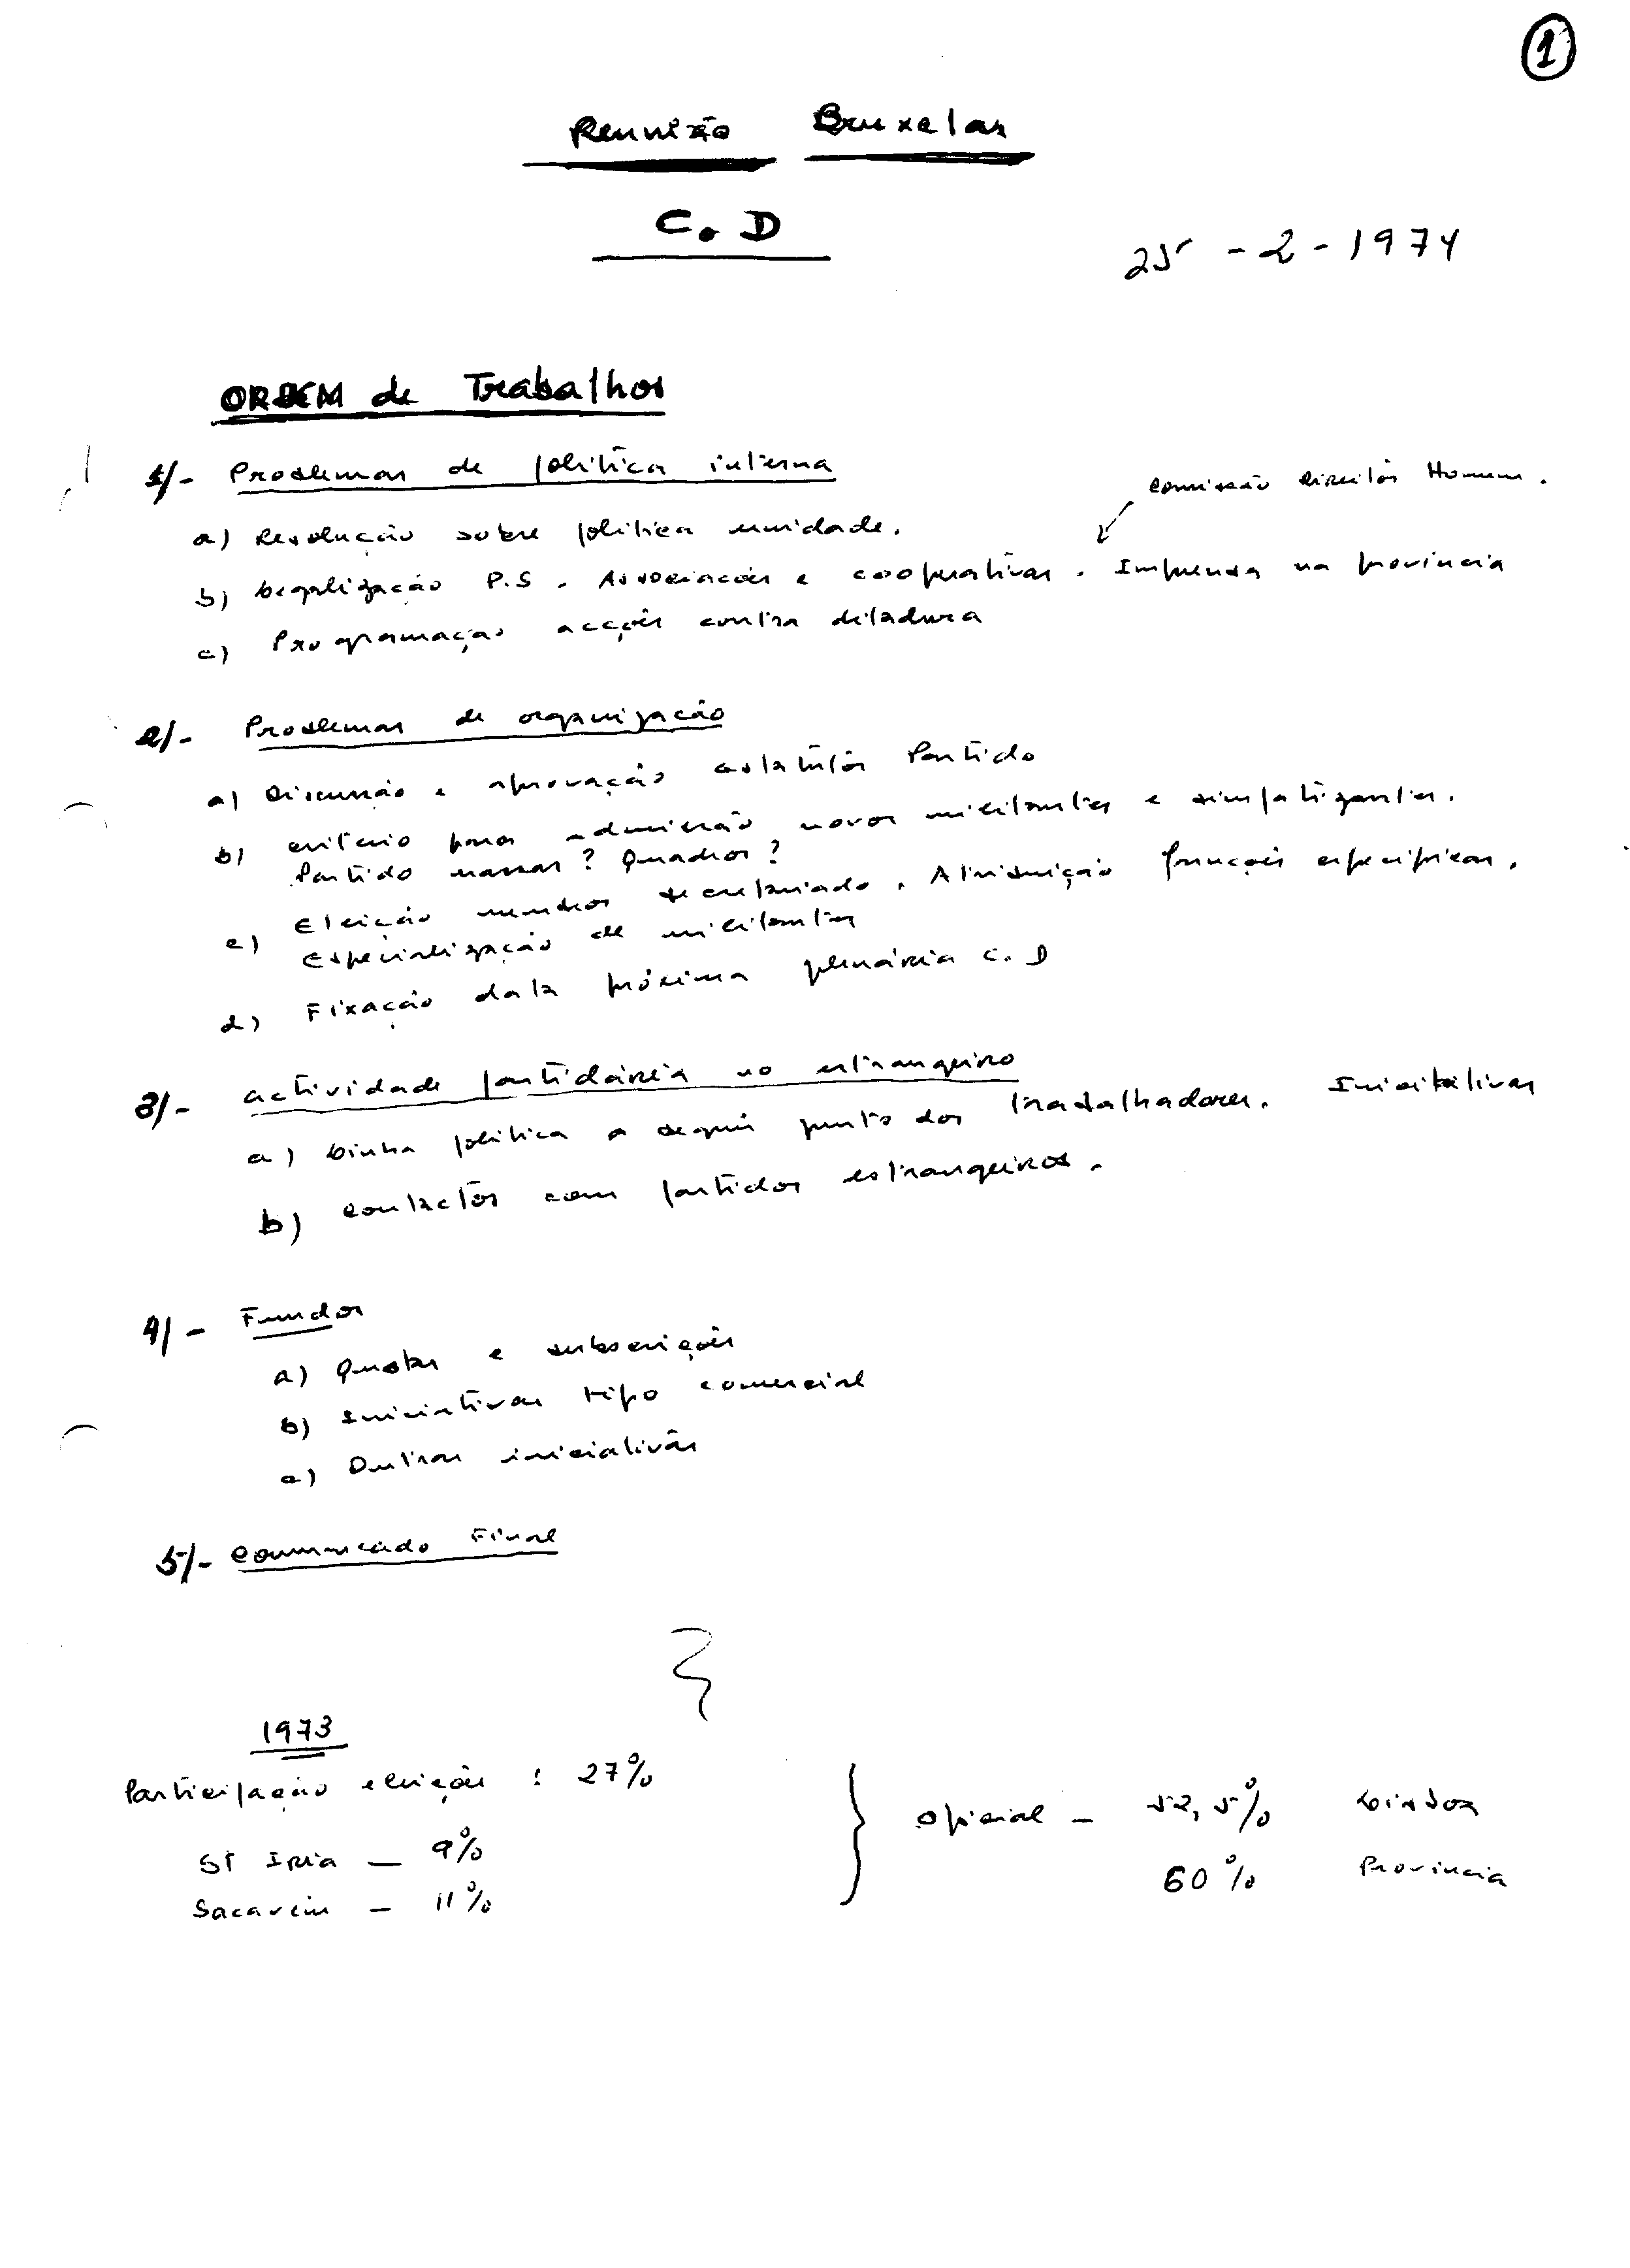 1
Reunião Bruxelas
C. D
25-2-1974
ORDEM de Trabalhos
1/- Problemas de política interna
Comissão Direitos Homem.
a) Resolução sobre política unidade.
b) Legalização P.S. Associações e cooperativas. Imprensa na província
c) Programação acções contra ditadura
2/- Problemas de organização
a) Discussão e aprovação estatutos Partido
b) Critério para admissão novos militantes e simpatizantes.
Partido massas? Quadros?
c) Eleição membros secretariado. Atribuição funções específicas.
Especialização de militantes
d) Fixação data próxima plenária C. D
3/- Actividade partidária no estrangeiro
a) Linha política a seguir junto dos trabalhadores. Iniciativas
b) Contactos com partidos estrangeiros.
4/- Fundos
a) Quotas e subscrições
b) Iniciativas tipo comercial
c) Outras iniciativas
5/- Comunicado Final
1973
Participação eleições : 27%
St Iria — 9%
Sacavém — 11%
Oficial — 52,5% Lisboa
60% Província